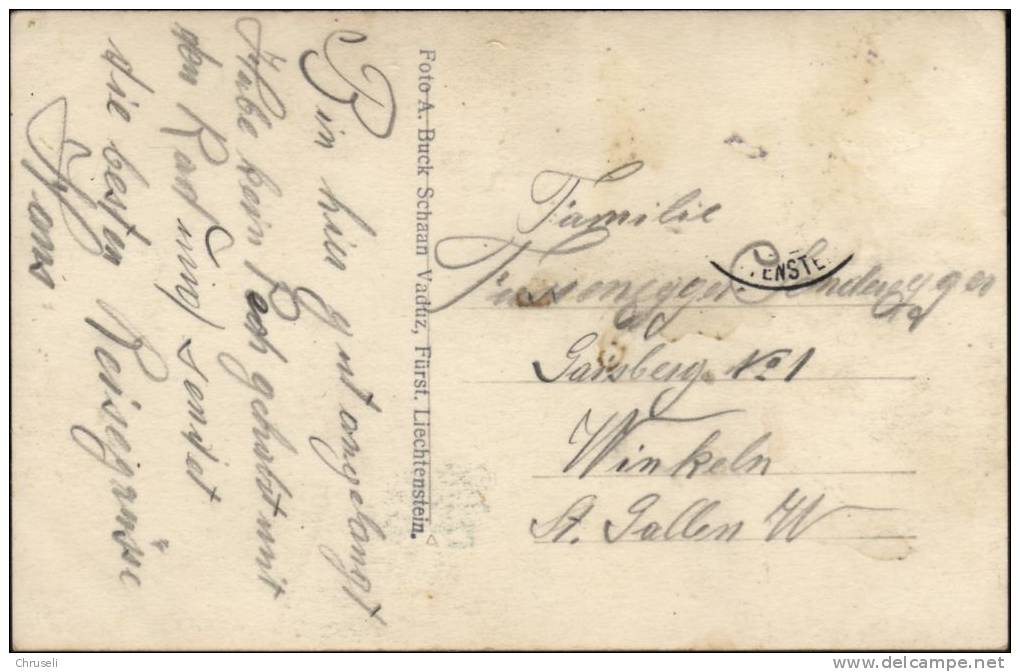 Bin hier gut angelangt
Habe kein Pech gehabt mit
den Rad und sendet
die besten Reisegrüsse
Hans
Foto A. Buck Schaan Vaduz, Fürst. Liechtenstein.
Familie
Fussenegger Sonderegger
Gaisberg No 1
Winkeln
St. Gallen W
TENSTE
Chruseli
delcampe.net